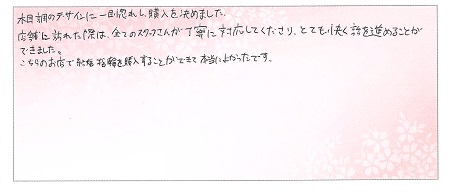 木目調のデザインに一目惚れし、購入を決めました。
店舗に訪れた際は、全てのスタッフさんが丁寧に対応してくださり、とても快く話を進めることが
できました。
こちらのお店で結婚指輪を購入することができて本当によかったです。